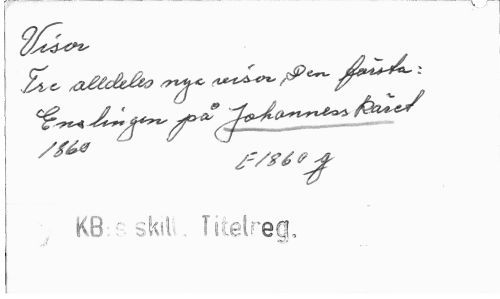 Visor
Tre alldeles nya visor, Den första:
Enslingen på Johannesskäret
1860
E1860 g
KB:s skill. Titelreg.